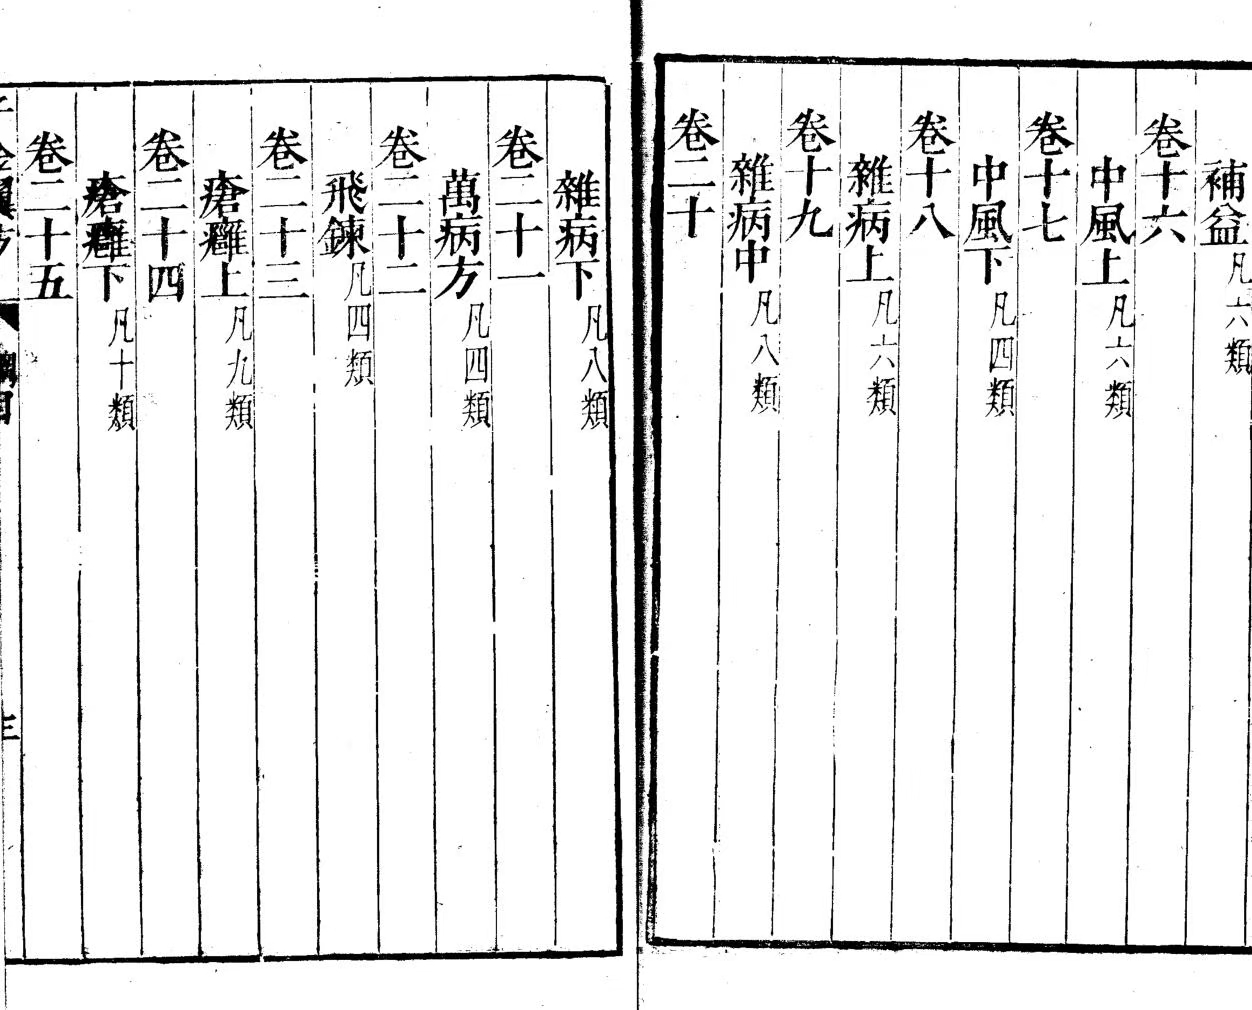 補益凡六類
卷十六
中風上凡六類
卷十七
中風下凡四類
卷十八
雜病上凡六類
卷十九
雜病中凡八類
卷二十
雜病下凡八類
卷二十一
萬病方凡四類
卷二十二
飛鍊凡四類
卷二十三
瘡癰上凡九類
卷二十四
瘡癰下凡十類
卷二十五